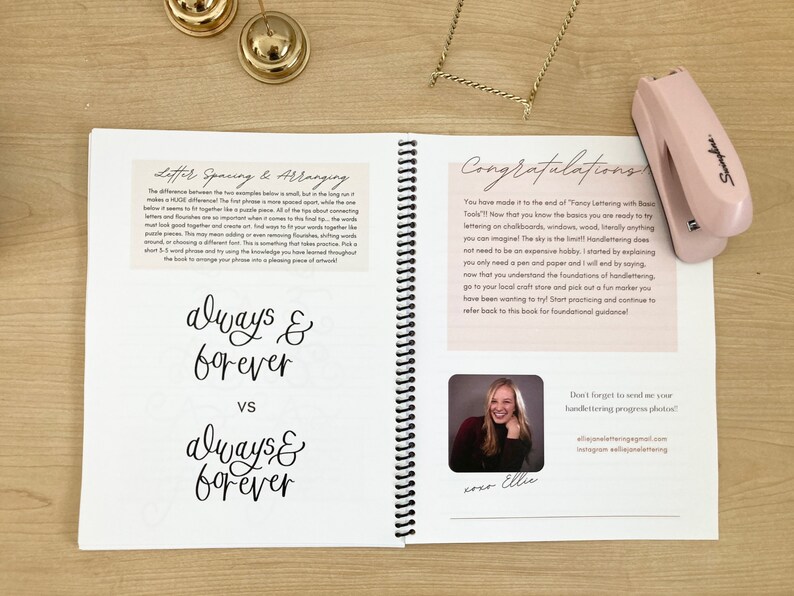 Letter Spacing & Arranging
The difference between the two examples below is small, but in the long run it
makes a HUGE difference! The first phrase is more spaced apart, while the one
below it seems to fit together like a puzzle piece. All of the tips about connecting
letters and flourishes are so important when it comes to this final tip... the words
must look good together and create art. find ways to fit your words together like
puzzle pieces. This may mean adding or even removing flourishes, shifting words
around, or choosing a different font. This is something that takes practice. Pick a
short 3-5 word phrase and try using the knowledge you have learned throughout
the book to arrange your phrase into a pleasing piece of artwork!
always &
forever
vs
always &
forever
Congratulations!
You have made it to the end of "Fancy Lettering with Basic
Tools"!! Now that you know the basics you are ready to try
lettering on chalkboards, windows, wood, literally anything
you can imagine! The sky is the limit!! Handlettering does
not need to be an expensive hobby. I started by explaining
you only need a pen and paper and I will end by saying,
now that you understand the foundations of handlettering,
go to your local craft store and pick out a fun marker you
have been wanting to try! Start practicing and continue to
refer back to this book for foundational guidance!
Don't forget to send me your
handlettering progress photos!!
elliejanelettering@gmail.com
instagram @elliejanelettering
xoxo Ellie
Swingline